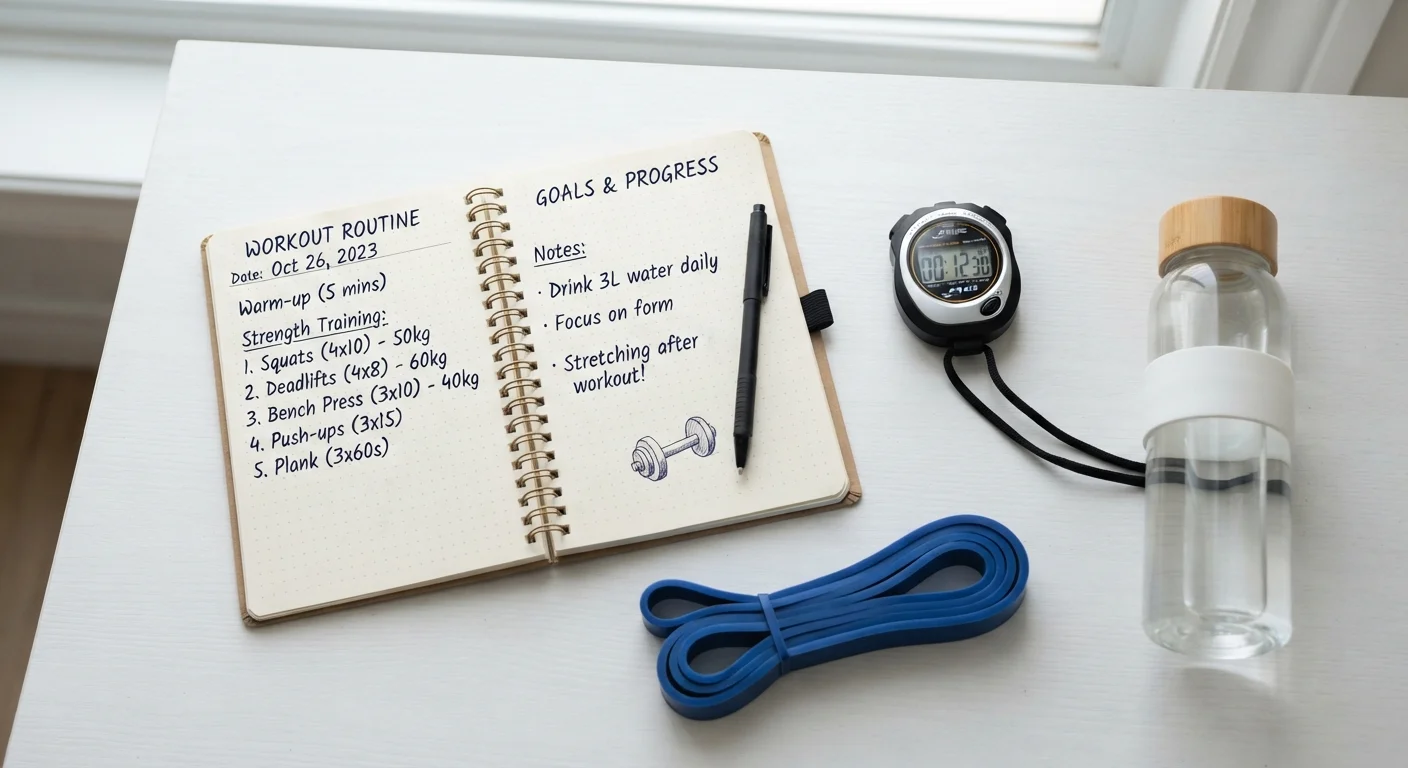 WORKOUT ROUTINE
Date: Oct 26, 2023
Warm-up (5 mins)
Strength Training:
1. Squats (4x10) - 50kg
2. Deadlifts (4x8) - 60kg
3. Bench Press (3x10) - 40kg
4. Push-ups (3x15)
5. Plank (3x60s)
GOALS & PROGRESS
Notes:
· Drink 3L water daily
· Focus on form
· Stretching after
workout!
00:12 30